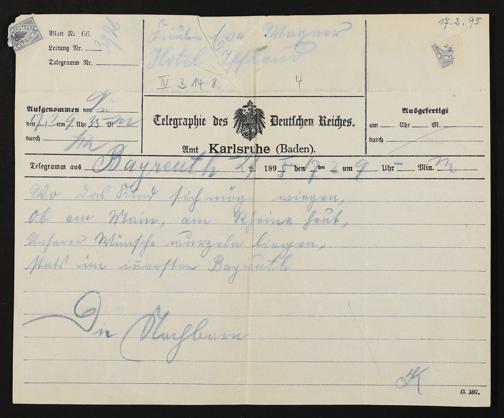 Blatt Nr. 66.
Leitung Nr.
Telegramm Nr.
Fräulein Eva Wagner
Hotel
IV B 14-8
4
17.2.95
Aufgenommen von
den 17/2 9 Uhr 35 M
durch
Telegraphie des Deutschen Reiches.
Amt Karlsruhe (Baden).
Ausgefertigt
um Uhr M.
durch
Telegramm aus Bayreuth 189 5 den 17 2 um 9 Uhr Min. M
Wo das Kind sich möge wiegen,
Ob am Main, am Rheine heut,
Unserer Wünsche wurzeln liegen,
stets im Bayreuth
Die Nachbarn
K